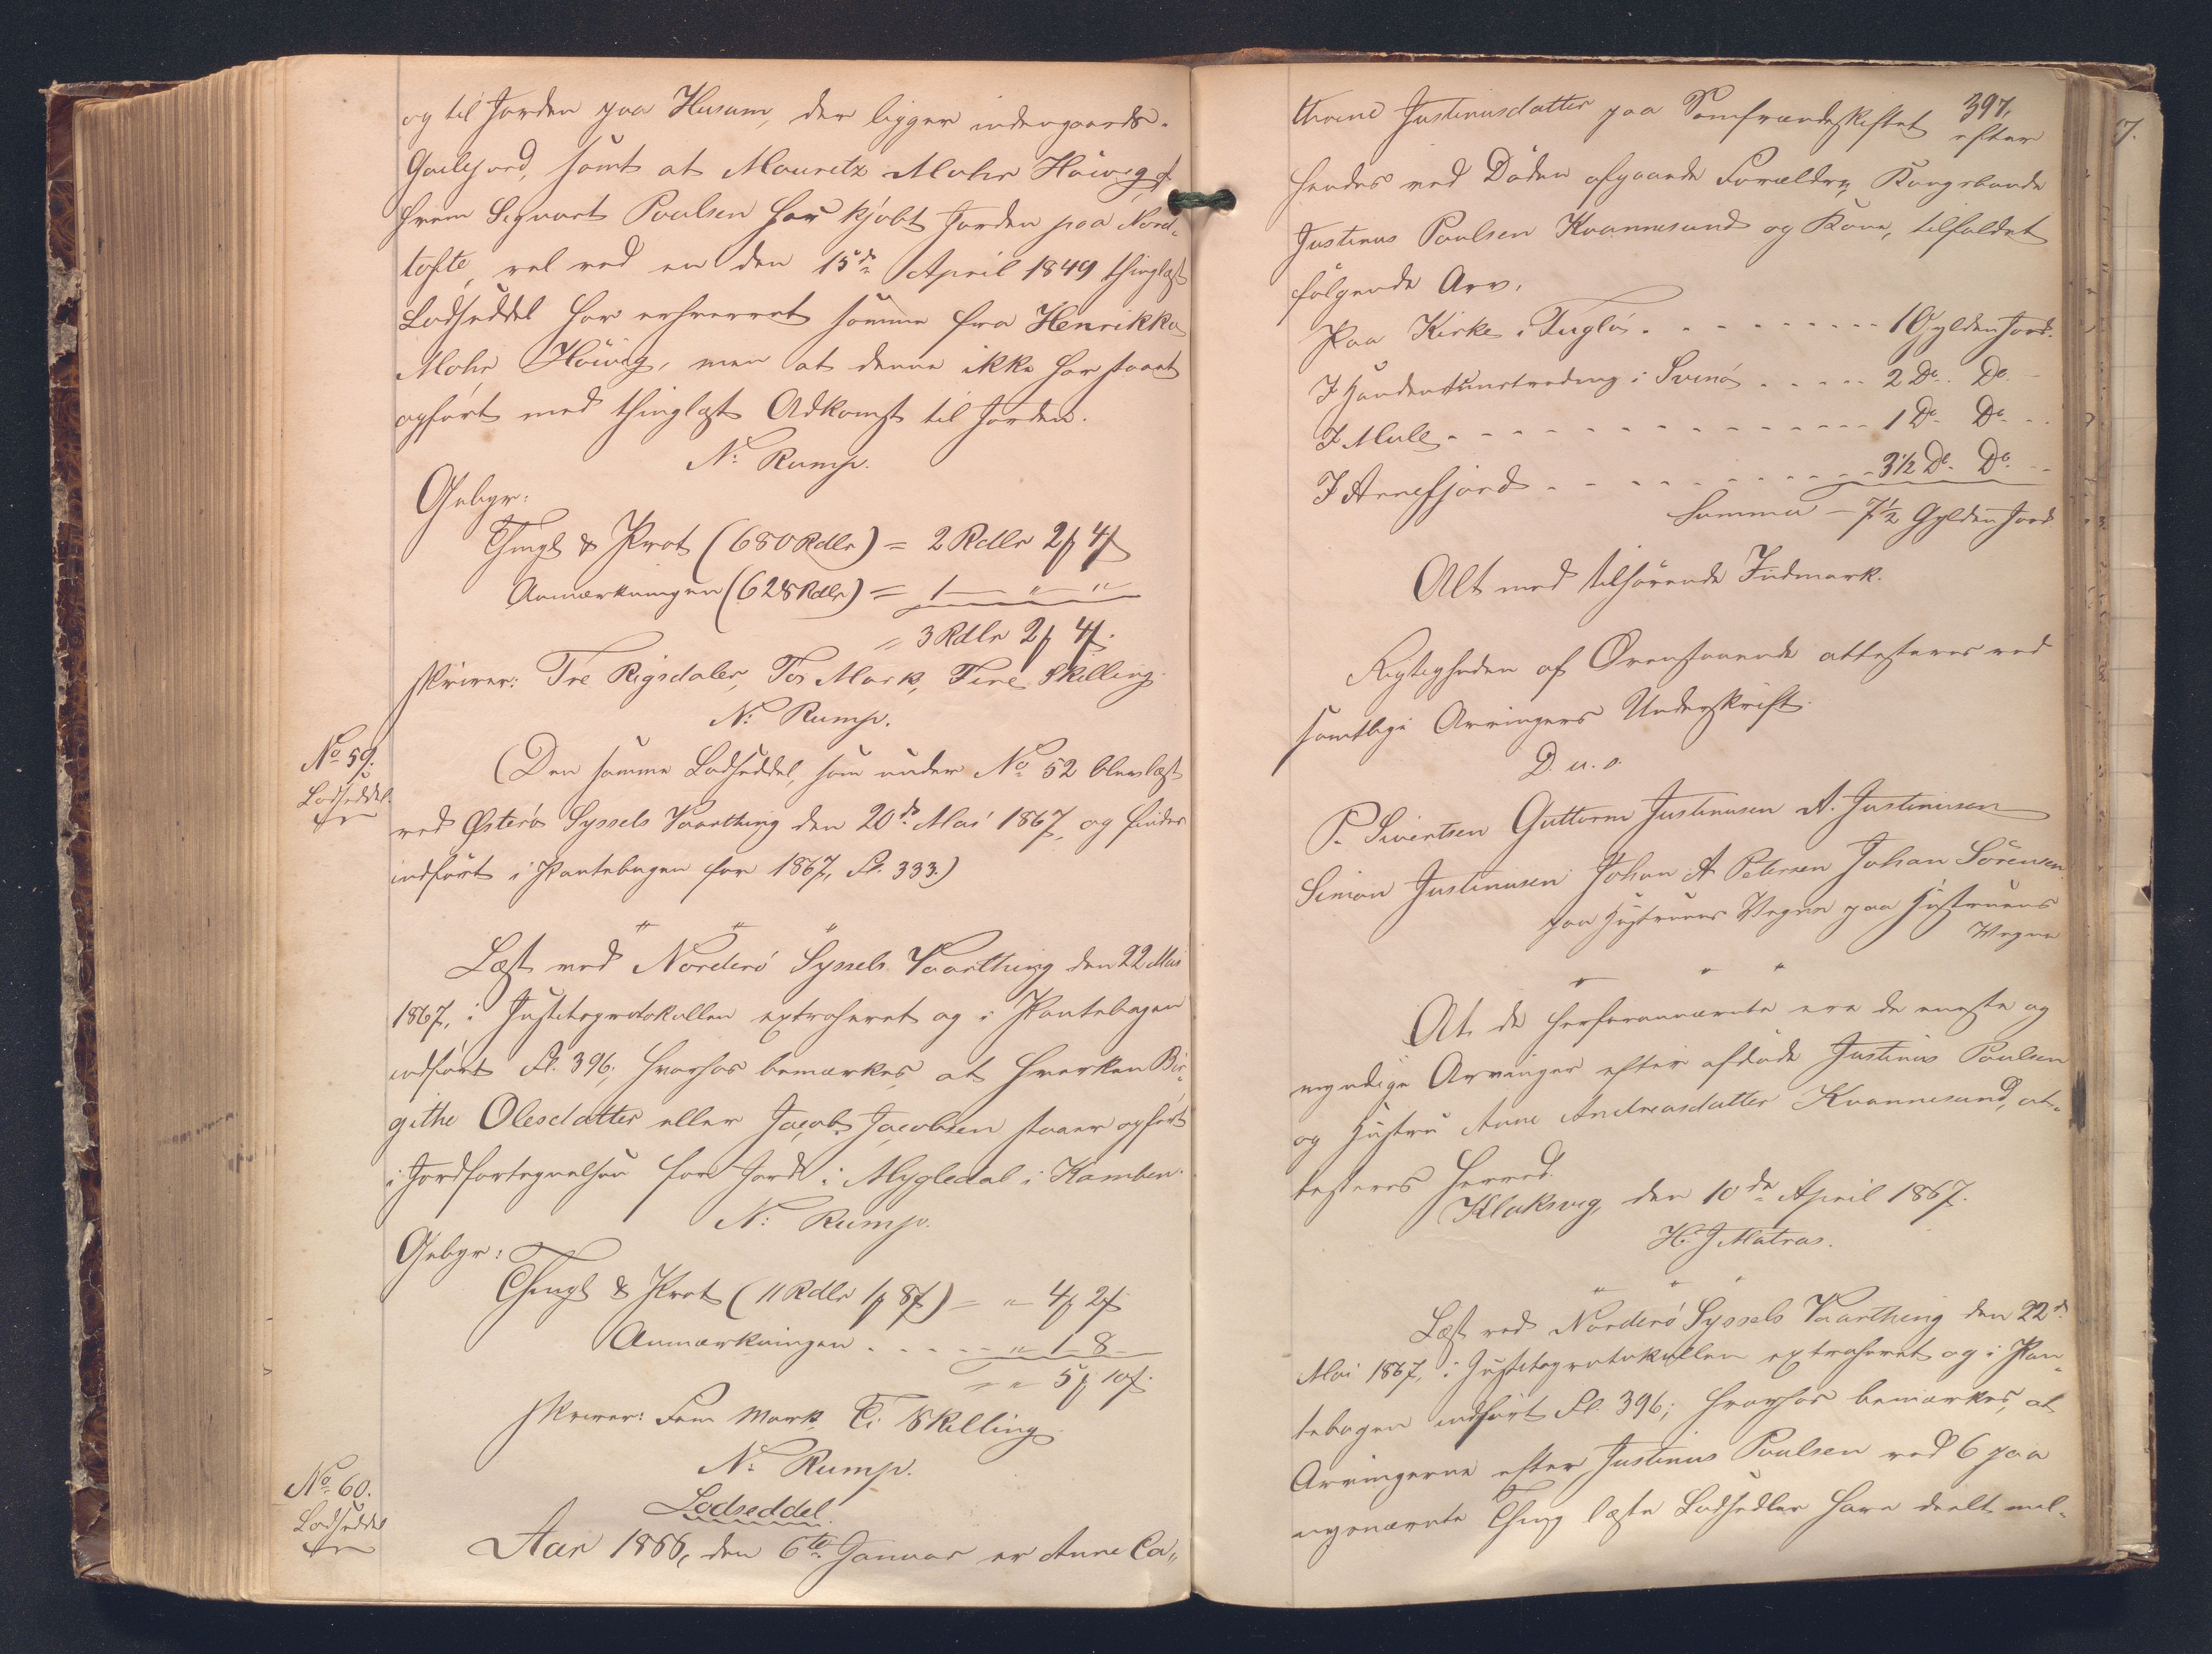 og til Jorden paa Husum, der ligger indengaards.
Gailejord, samt at Mouritz Mohr Höivig, af
hvem Sigvart Poulsen har kjøbt Jorden paa Nord-
tofte, vel ved en den 15de April 1849 thinglæst
Lodseddel har erhvervet samme fra Henrikka
Mohr Höivig, men at denne ikke har staaet
opført med thinglæst Adkomst til Jorden.
N: Rump.
Gebyr:
Thingl & Prot (680 Rdlr) = 2 Rdlr 2 ʄ 4 ʄ
Anmærkningen (628 Rdlr) = 1 — " — "
" 3 Rdlr 2 ʄ 4 ʄ.
skriver: Tre Rigsdaler, To Mark, Fire Skilling.
N: Rump.
No 59.
Lodseddel.
(Den samme Lodseddel, som under No 52 blev læst
ved Österö Syssels Vaarthing den 20de Mai 1867, og findes
indført i Pantebogen for 1867, Fl. 333.)
" " "
Læst ved Norderö Syssels Vaarthing den 22 Mai
1867, i Justitsprotokollen extraheret og i Pantebogen
indført Fl. 396; hvorhos bemærkes, at hverken Bir-
githe Olesdatter eller Jacob Jacobsen staaer opført
i Jordfortegnelsen for Jord i Mygledal i Kamben.
N: Rump.
Gebyr:
Thingl & Prot (11 Rdlr 1 ʄ 8 ʄ) = " 4 ʄ 2 ʄ
Anmærkningen . . . . " 1 - 8 -
= " 5 ʄ 10 ʄ.
skriver: Fem Mark, Ti Skilling.
N: Rump.
No 60.
Lodseddel
Lodseddel.
Aar 1866, den 6te Januar er Anne Ca-
397.
thrine Justinusdatter paa Samfrændeskiftet efter
hendes ved Döden afgaaede Forældre, Kongsbonde
Justinus Poulsen Kvannesund og Kone, tilfaldet
følgende Arv.
Paa Kirke i Fuglö . . . . . . . . . 1 Gylden Jord.
I i Svinö . . . . . 2 Do. Do. -
I Mule . . . . . . . . . . . . . 1 Do. Do. -
I Arnefjord . . . . . . . . . . 3½ Do. Do. -
Summa — 7½ Gylden Jord
Alt med tilhørende Indmark.
Rigtigheden af Ovenstaaende attesteres ved
samtlige Arvingers Underskrift.
D. u. s.
P. Sivertsen Guttorm Justinusen A. Justinusen
Simon Justinusen Johan A Petersen Johan Sörensen
paa Hustruens Vegne paa Hustruens
Vegne
" " "
At de herforannævnte ere de eneste og
myndige Arvinger efter afdøde Justinus Poulsen
og Hustru Anne Andreasdatter Kvannesund, at-
testeres herved.
Klaksvig, den 10de April 1867.
H. J Matras.
" " "
Læst ved Norderö Syssels Vaarthing den 22de
Mai 1867, i Justitsprotokollen extraheret og i Pan-
tebogen indført Fl. 396; hvorhos bemærkes, at
Arvingerne efter Justinus Poulsen ved 6 paa
nysnævnte Thing læste Lodsedler have deelt mel-